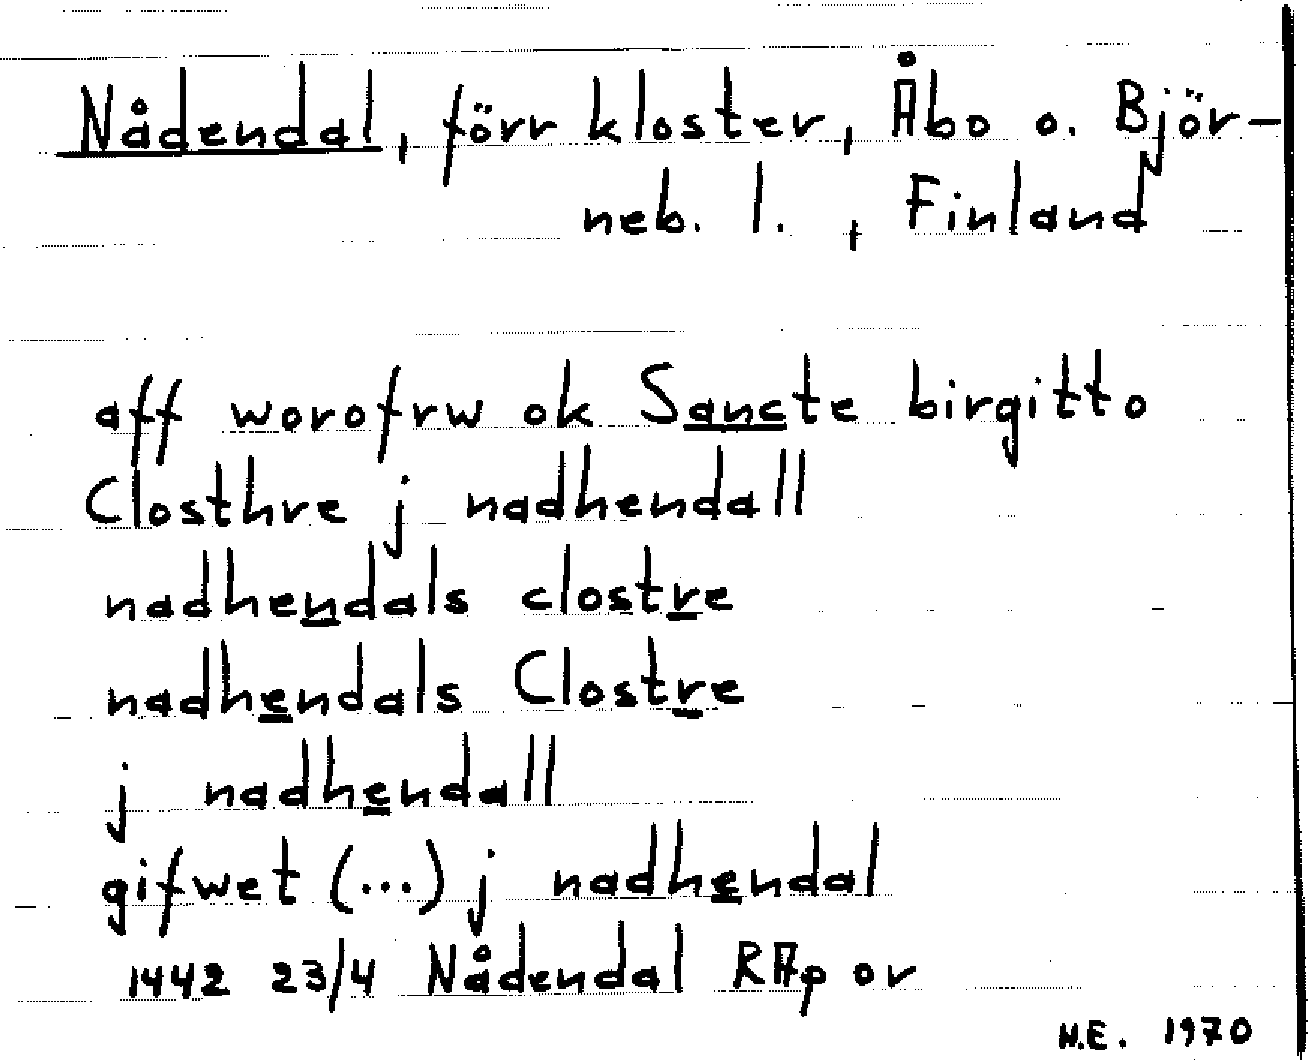 Nådendal, förr kloster, Åbo o. Björ-
neb. l., Finland
aff worofrw ok Sancte birgitto
Closthre j nadhendall
nadhendals clostre
nadhendals Clostre
j nadhendall
gifwet (...) j nadhendal
1442 23/4 Nådendal RAp or
N.E. 1970